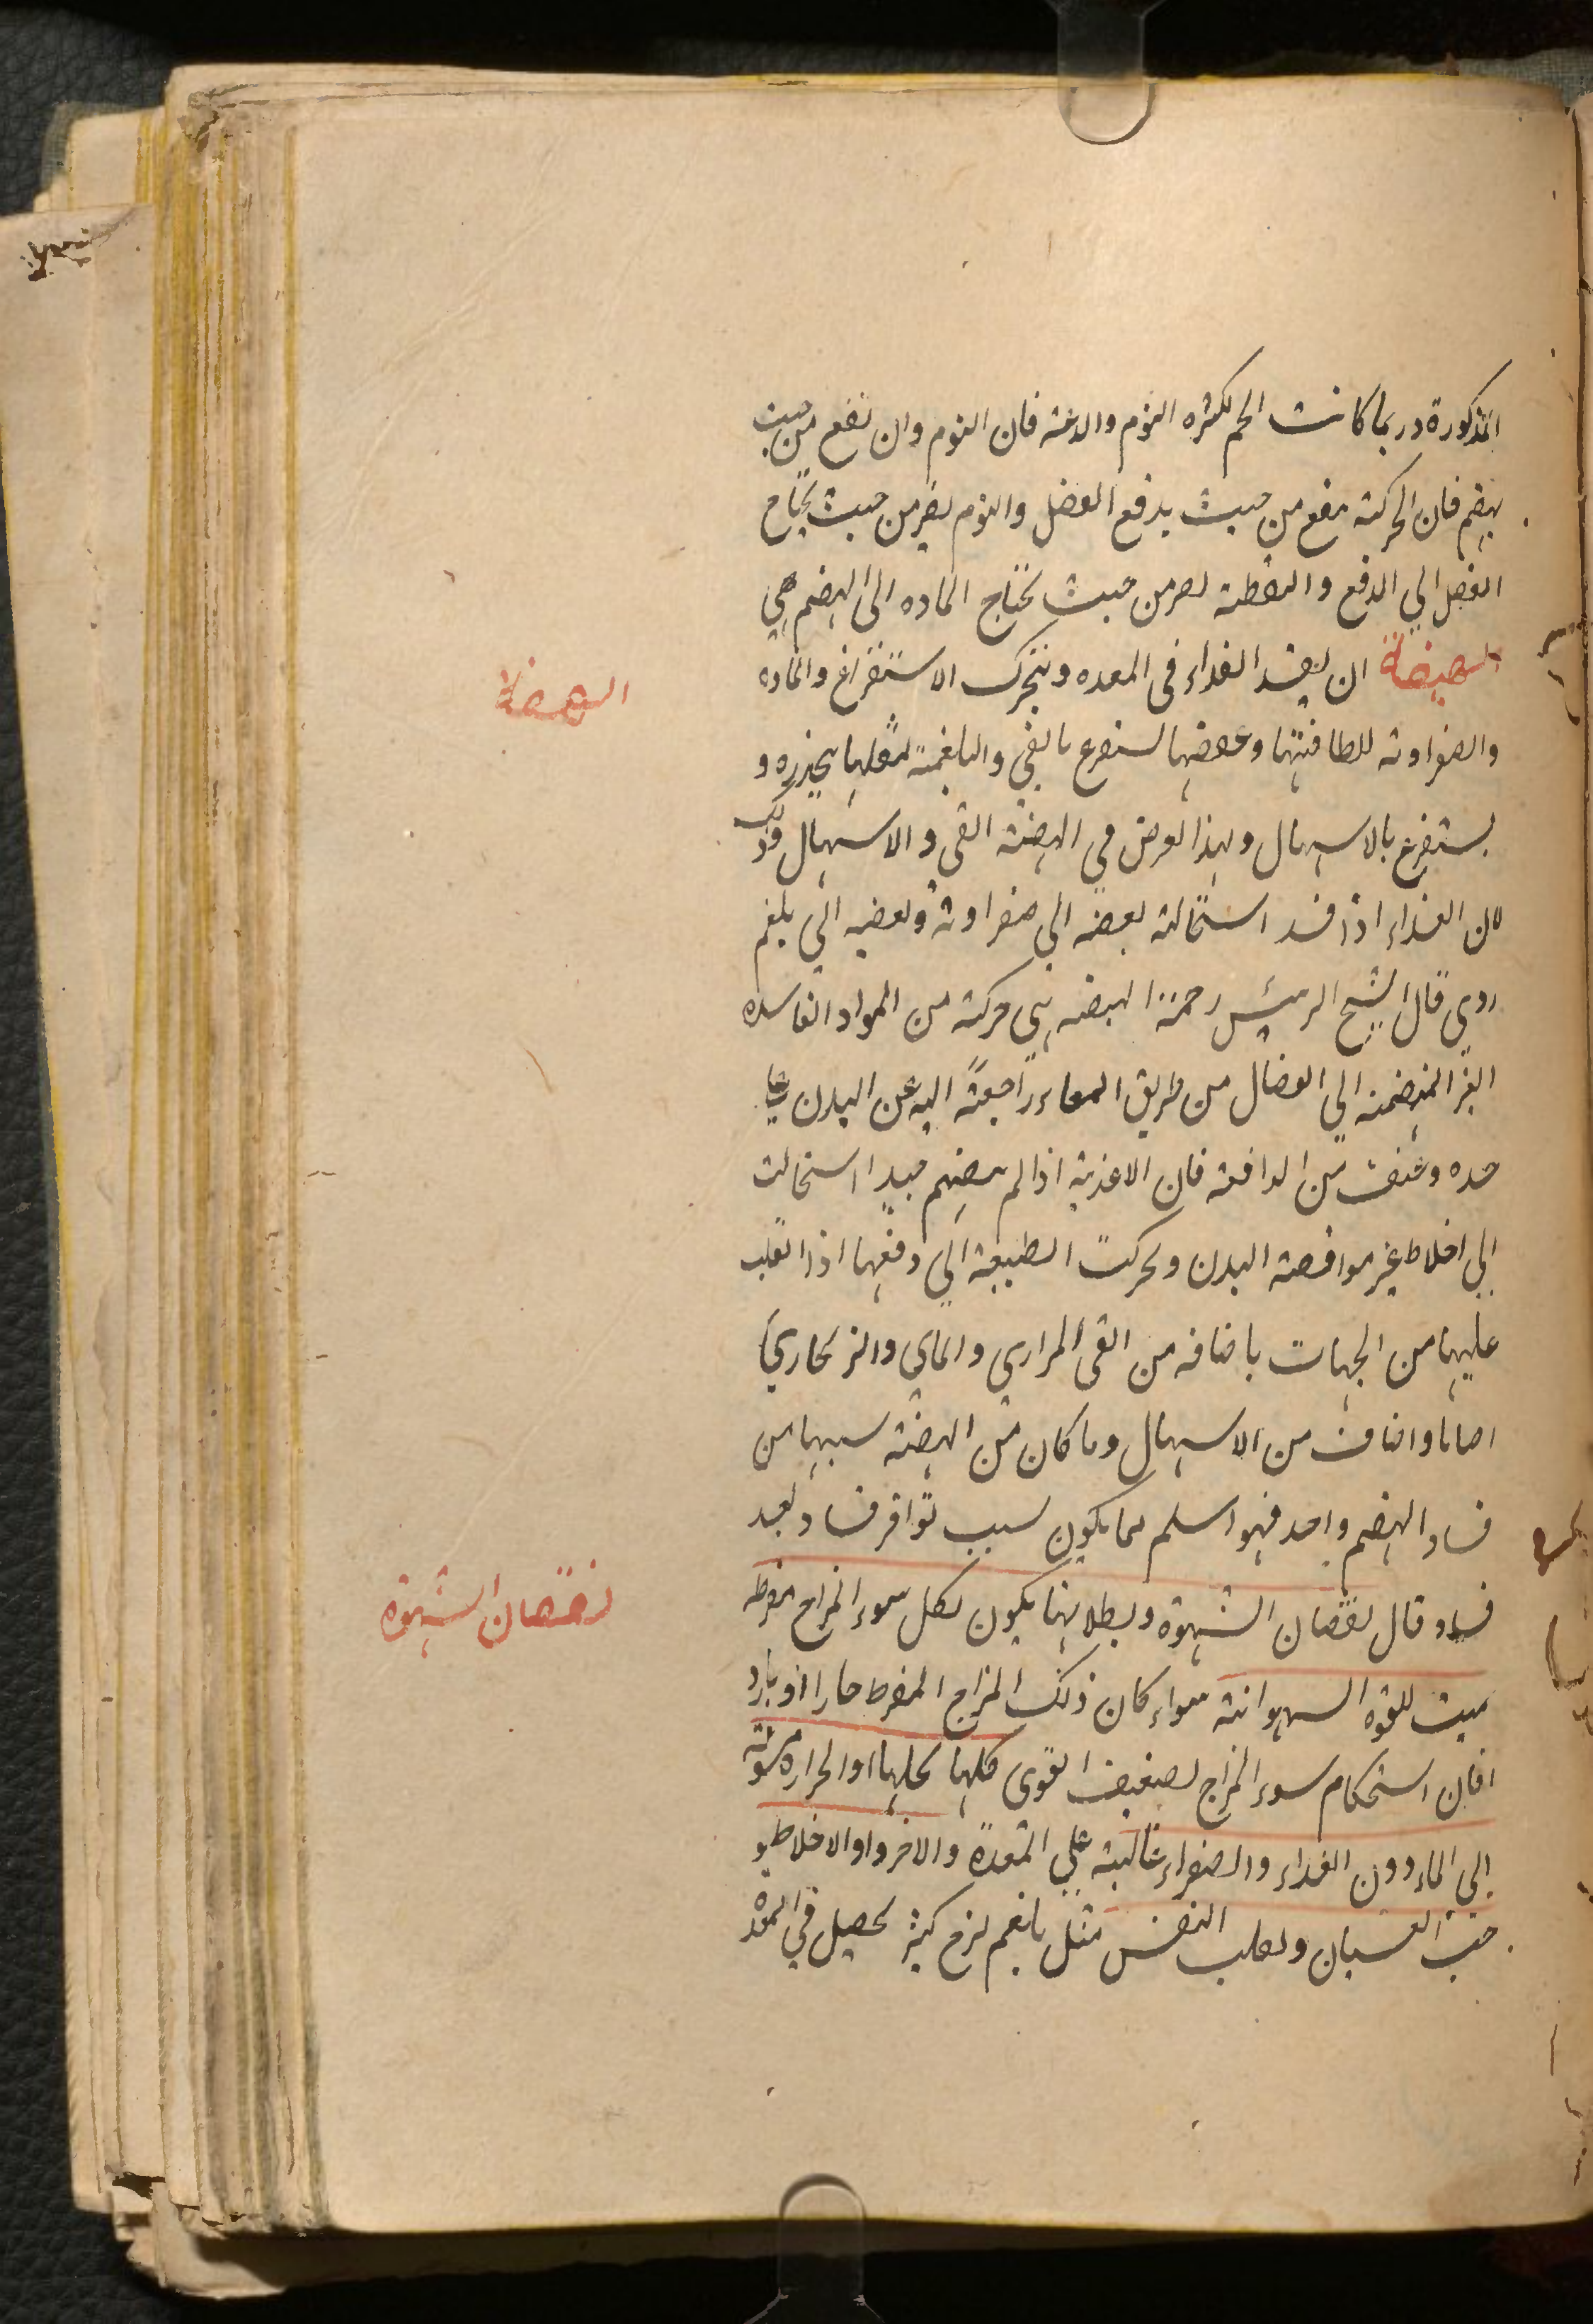 المذكورة وربما كانت الحم لكثره النوم والدعة فان النوم وان نفع من حيث
يهضم فان الحركة تنفع من حيث يدفع الفضل والنوم يضر من حيث يحتاج
الفضل الي الدفع واليقظة تضر من حيث يحتاج الماده الى الهضم هي
الهيضة ان يفسد الغداء فى المعده ويتحرك الاستفراغ والماده
الهيضة
والصفراوية للطافتها وخفتها يستفرغ بالقي والبلغمية لثقلها ينحدر و
يستفرغ بالاسهال ولهذا لعرض في الهيضة القى والاسهال وذلك
لان الغداء اذا فسد استحالته بعضه الى صفراوية وبعضه الي بلغم
ردى قال الشيخ الرئيس رحمة الهيضه هي حركة من المواد الفاسده
الغير المنهضمة الي الفضال من طريق المعاء راجعة اليه عن البدن علي
حده وعنف من الدافعة فان الاغذية اذا لم ينهضم جيدا استحالت
الي اخلاط غير موافقة البدن وتحركت الطبيعة الي دفعها اذا انقلب
عليها من الجهات باضافه من القى المراري والماي والزنجاري
احيانا واضاف من الاسهال وما كان من الهيضة سببها من
فساد الهضم واحد فهو اسلم مما يكون بسبب تواتر فساد بعد
فساد وقال نقصان الشهوة وبطلانها يكون لكل سوء المزاج مفرط
نقصان الشهوة
مميت للقوه الشهوانية سواء كان ذلك المزاج المفرط حارا او باردا
فان استحكام سوء المزاج يضعيف القوى كلها كلها او الحراره مشوقة
الى الماء دون الغداء والصفراء غالبة علي المعدة والاخر او الاخلاط
خبث الغثيان وتقلب النفس مثل بلغم لزج كثير يحصل في المعده